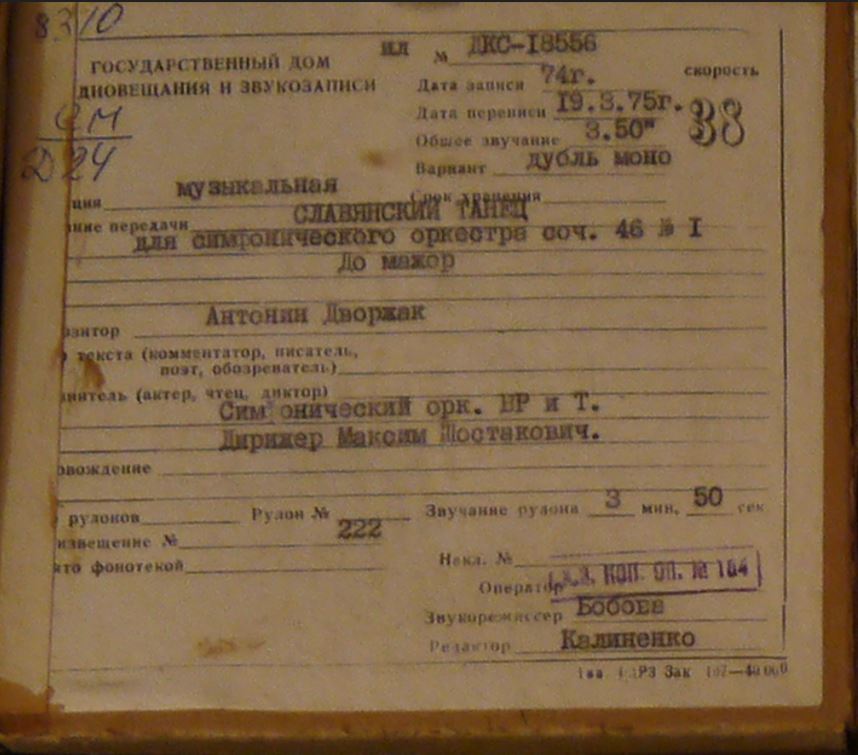 8310
ил № ДКС-18556
ГОСУДАРСТВЕННЫЙ ДОМ
ДИОВЕЩАНИЯ И ЗВУКОЗАПИСИ
Дата записи 74г.
скорость
Дата переписи 19.3.75г.
38
Общее звучание 3.50"
Вариант дубль моно
Д 24
ция музыкальная
Срок хранения
ние передачи СЛАВЯНСКИЙ ТАНЕЦ
для симфонического оркестра соч. 46 № I
До мажор
озитор Антонин Дворжак
текста (комментатор, писатель,
поэт, обозреватель)
нитель (актер, чтец, диктор)
Симфонический орк. ВР и Т.
Дирижер Максим Шостакович.
овождение
рулонов Рулон № Звучание рулона 3 мин. 50 сек
извещение № 222
Накл. №
ято фонотекой
Оператор КОП. ОП. № 184
Звукорежиссер Бобова
Редактор Калиненко
РЗ Зак